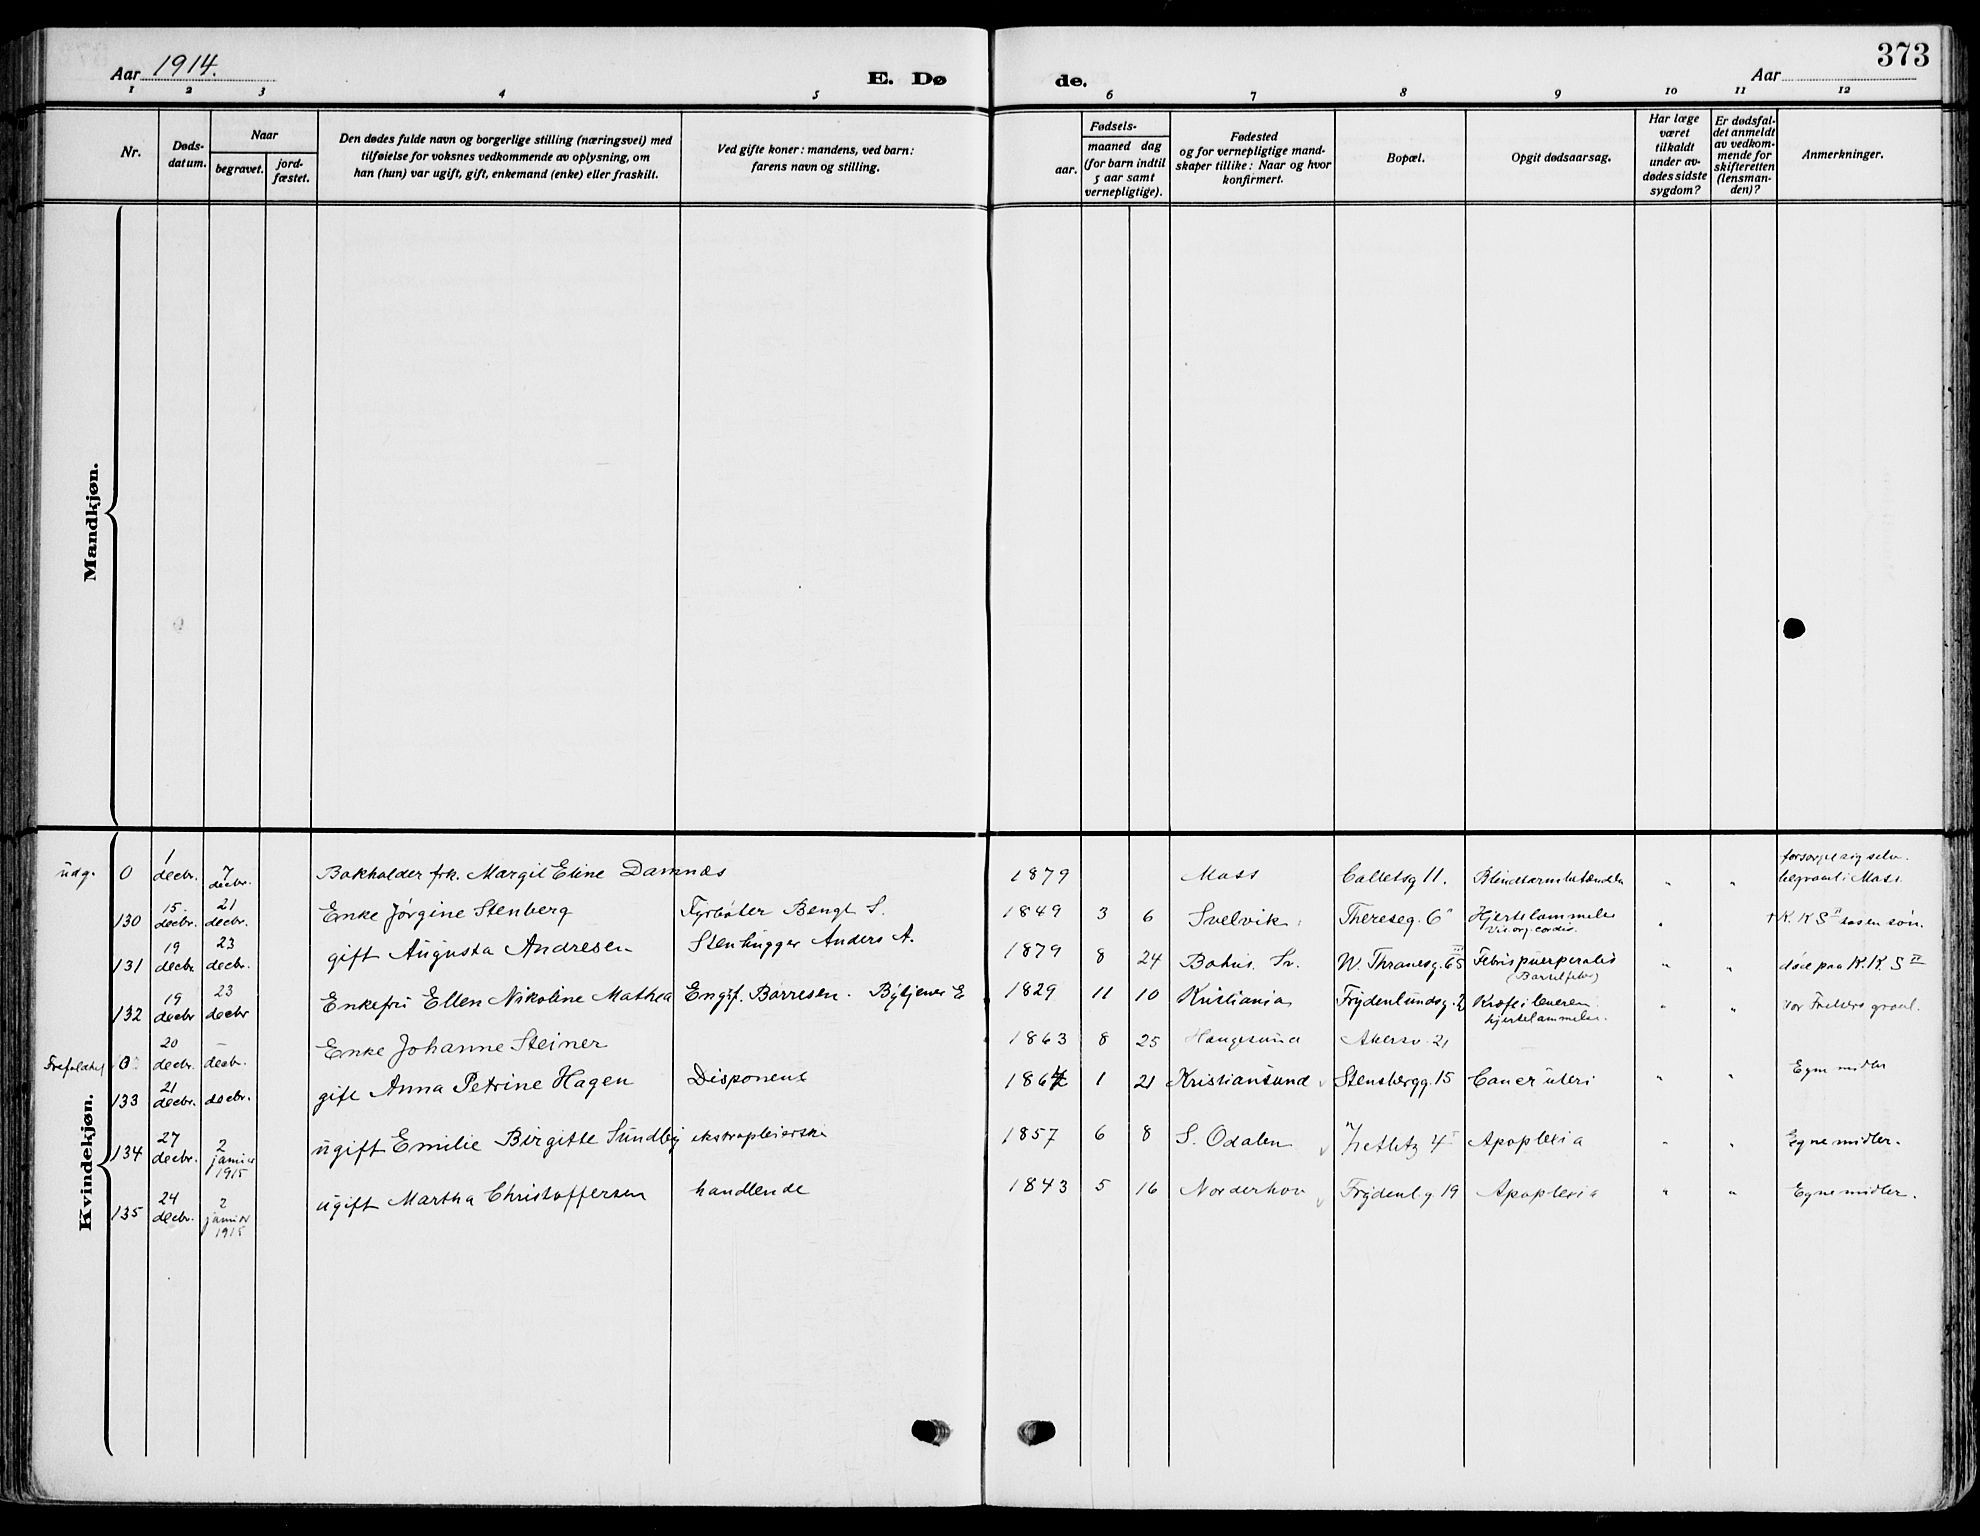 Aar 1914.
E. Dø
de.
Aar
373
1 2 3 4 5 6 7 8 9 10 11 12
Nr.
Døds-
datum.
Naar
begravet.
jord-
fæstet.
Den dødes fulde navn og borgerlige stilling (næringsvei) med
tilføielse for voksnes vedkommende av oplysning, om
han (hun) var ugift, gift, enkemand (enke) eller fraskilt.
Ved gifte koner: mandens, ved barn:
farens navn og stilling.
aar.
Fødsels-
maaned dag
(for barn indtil
5 aar samt
vernepligtige).
Fødested
og for vernepligtige mand-
skaper tillike: Naar og hvor
konfirmert.
Bopæl.
Opgit dødsaarsag.
Har læge
været
tilkaldt
under av-
dødes sidste
sygdom?
Er dødsfal-
det anmeldt
av vedkom-
mende for
skifteretten
(lensman-
den)?
Anmerkninger.
Mandkjøn.
Kvindekjøn.
udg. 0 1 decbr. 7 decbr. Bokholder frk. Margit Eline Damnæs 1879 Moss Colletsg 11. Blindtarmbetændelse " " forsørget sig selv. begravet i Moss.
130 15. decbr. 21 decbr. Enke Jørgine Stenberg Fyrbøter Bengt S. 1849 3 6 Svelvik Thereseg. 6" Hjertelammelse Vit. org. cordis. " K. K S II søn.
131 19 decbr. 23 decbr. gift Augusta Andresen Stenhugger Anders A. 1879 8 24 Bohus. Sv. W. Thranesg. 65 III Febris puerperalis (Barselfeber) " " død paa K. K. S II
132 19 decbr 23 decbr Enkefru Ellen Nikoline Mathea Engf. Borresen. Bytjener E 1829 11 10 Kristiania Frydenlundsg. 2 Kræft i leveren. hjertelammelse. " " Vor Frelsers gravl.
Trefoldighed 0 20 decbr. – decbr. Enke Johanne Steiner 1863 8 25 Haugesund Akersv. 21
133 21 decbr. decbr. gift Anna Petrine Hagen Disponent 1864 1 21 Kristiansund Stensbergg. 15 Cancer uteri " " Egne midler
134 27 decbr. 2 januar 1915 ugift Emilie Birgitte Sundby ekstrapleierske 1857 6 8 S. Odalen Zetlitz 4 I Apoplexia " " Egne midler.
135 24 decbr. 2 januar 1915 ugift Martha Christoffersen handlende 1843 5 16 Norderhov Frydenl. g. 19 Apoplexia " " Egne midler.